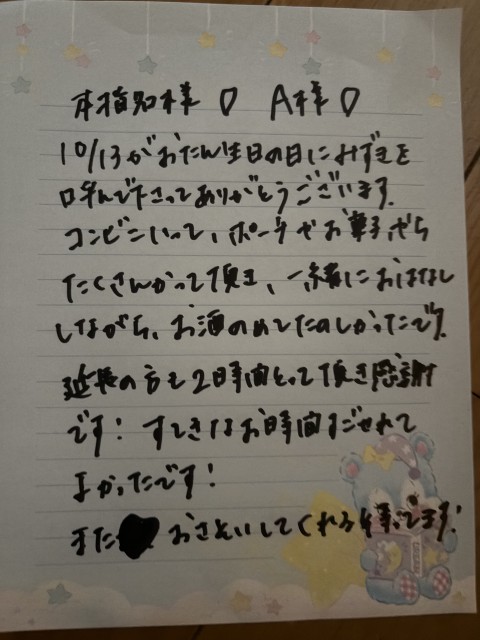 本指名様♡ A様♡
10/13がおたん生日の日にみずきを
呼んで下さってありがとうございます.
コンビニいって、ポーチやお菓子やら
たくさんかって頂き、一緒におはなし
しながら、お酒のめてたのしかったです.
延長の方も2時間とって頂き感謝
です! すてきなお時間すごせれて
よかったです!
また おさそいしてくれる待ってます!